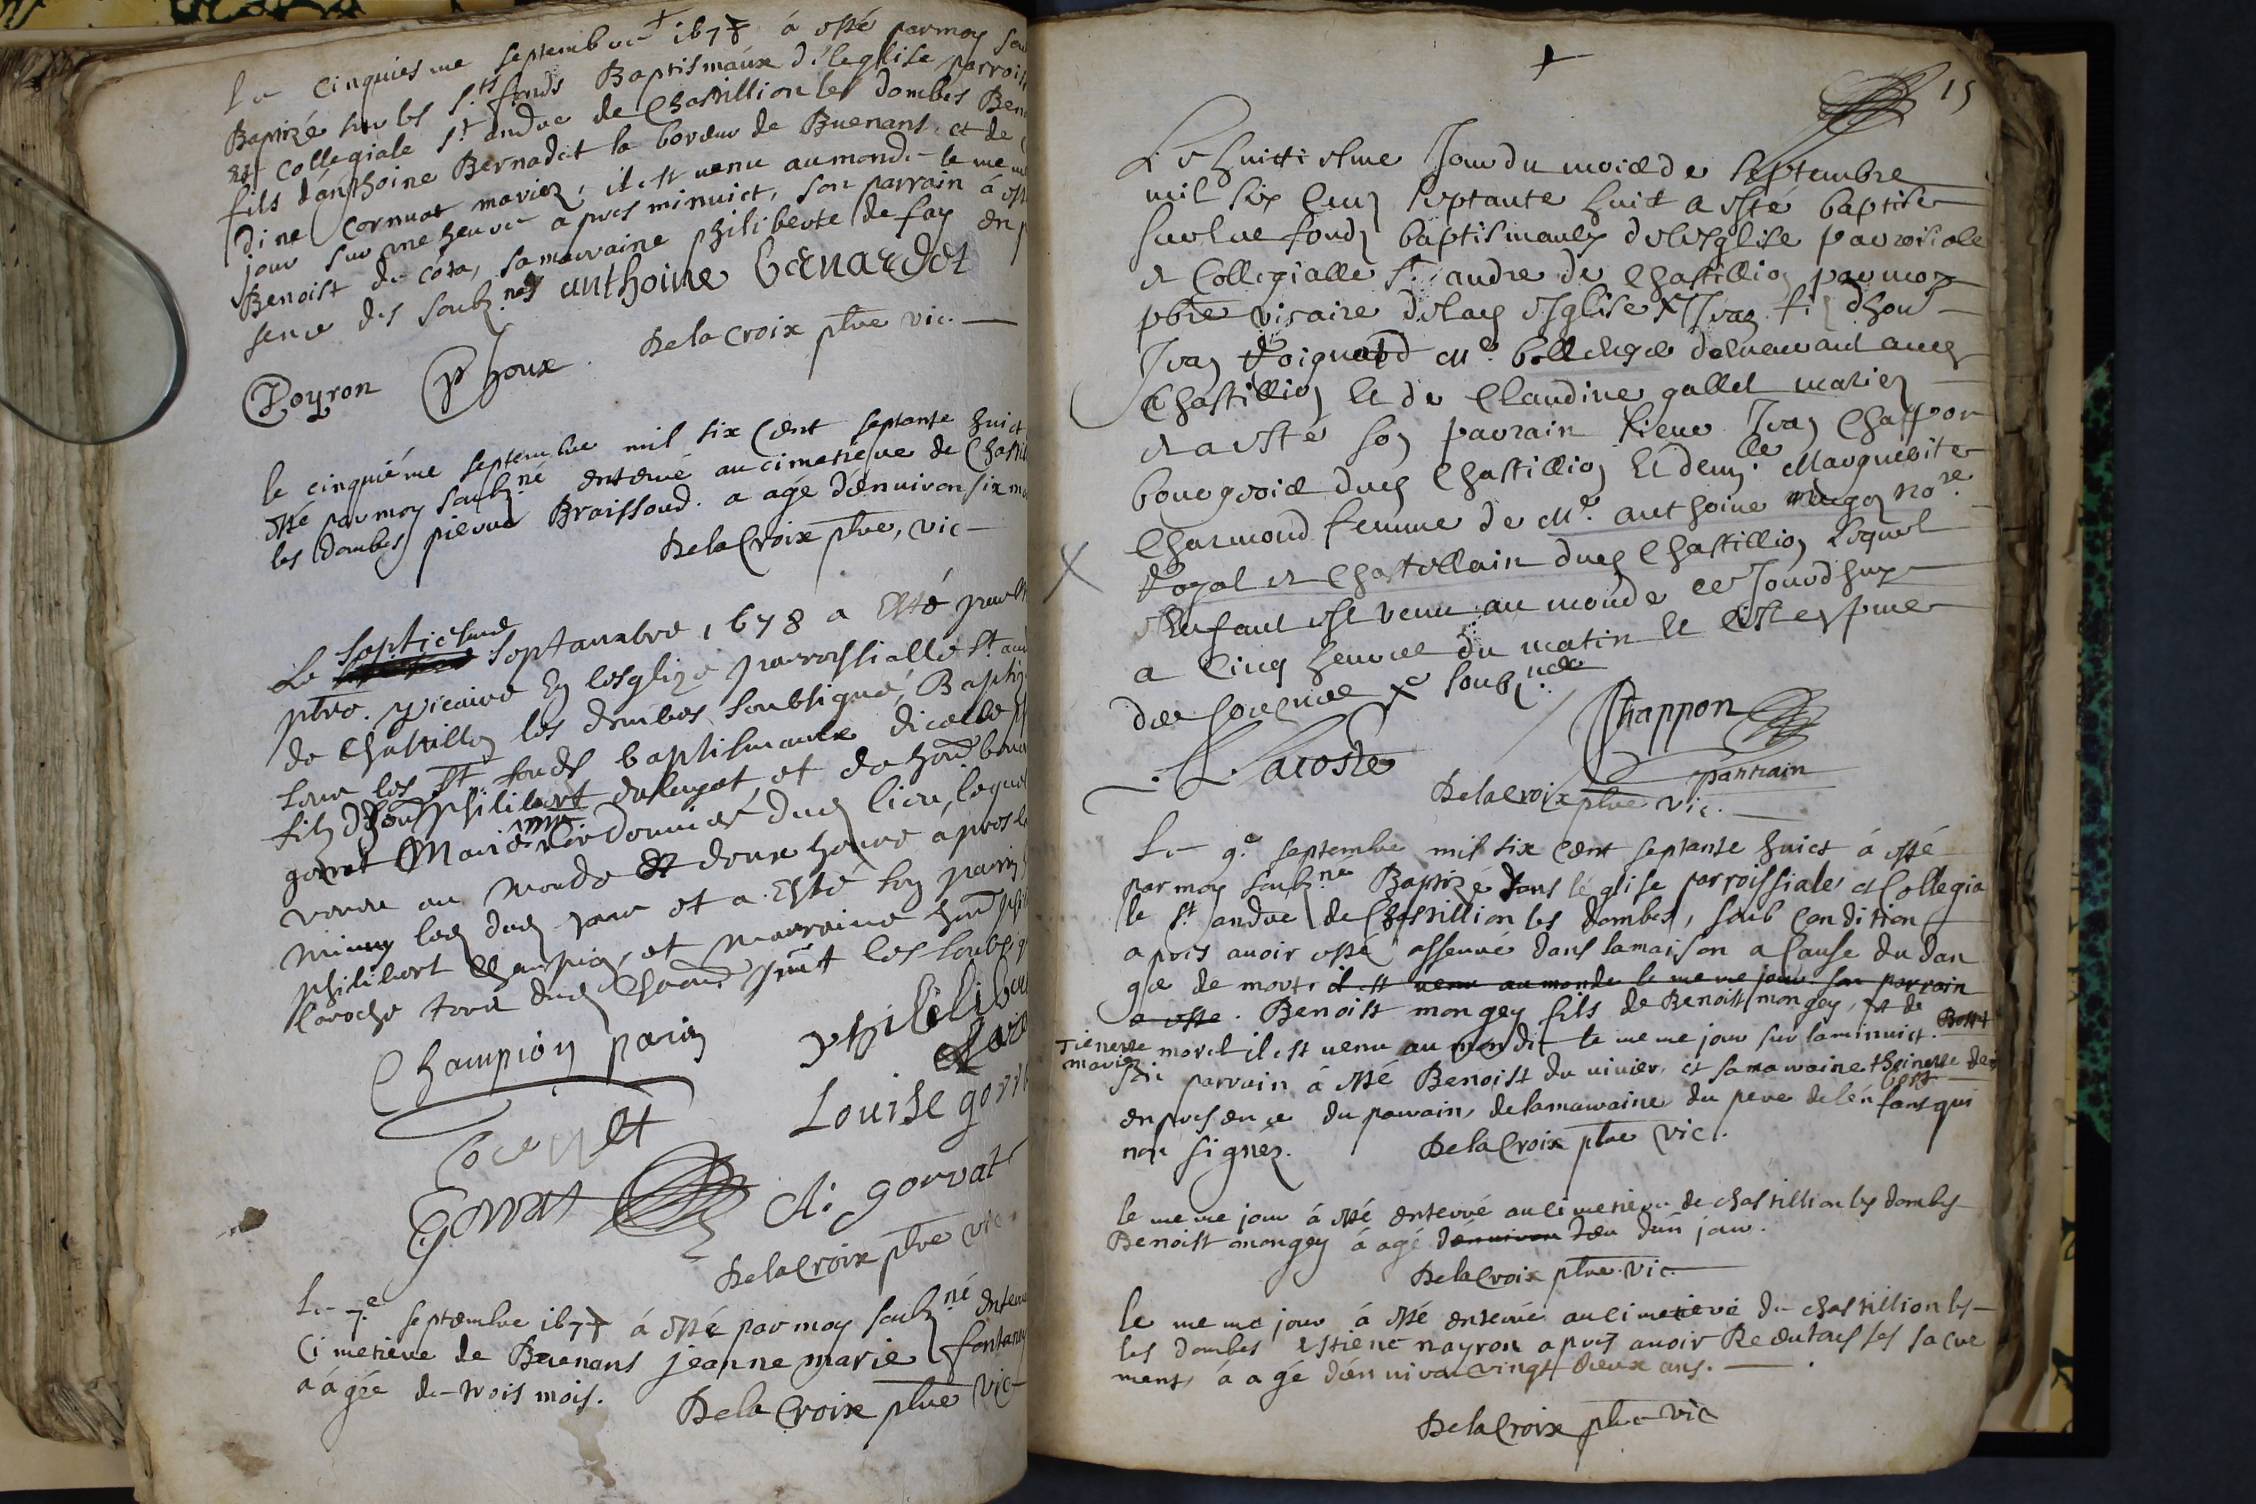 Le cinquiesme septembre 1678 á esté par moy
Baptizé sur les Sts fonds Baptismaúx dé l'eglise parroiss
et Collegiale St andre de Chastillion les dombes Ben
fils d'anthoine Bernadet laboreur de Buenans et de
dine Cornuat mariez, il est venu au monde le meme
jour sur une heure apres minuict, son parrain á esté
Benoist du cóta, sa marraine philiberte de fay en p
sence des soubz.nes anthoine bernardet
Poyron P houx Delacroix ptre vic.
le cinquiéme septembre mil six Cent septante huict
esté par moy soubz.né enterré au cimetiere de Chasti
les dombes pierre Braissoud. a agé d'environ six mo
Delacroix ptre, vic
septiesme
Le septambre 1678 a Esté par
ptre. vicaire En lesglize parrossialle St. and
de Chastillon les dombes soubsigné, Baptiz
sur les St. fonds baptismaulx dicelle
filz dhon. philibert et de hon.
gorrat Mariés dud lieu, lequel
venu au monde deux heures apres
minuy dud jour et a Esté son parrin
philibert Champion, et marraine
laroche tous dud les soubsig
Champion parin philibert
Louise gorr
gorrat cli gorrat
Delacroix ptre vic.
Le 7.e septembre 1678 á esté par moy soubz.né enterré
Cimetiere de Buenans jeanne marie fontan
a ágée de trois mois. Delacroix ptre vic
15
Le huictiesme Jour du mois de septembre
mil six Cens septante huict a esté baptise
sur les fonds baptismaulx de lesglise parroisiale
et Collegialle St. andre de Chastillion par moy
pbre vicaire de lad esglise Jean fils dhon
Jean Poignard Me. boulenger demeurant aud
Chastillion Et de Claudine gallet mariez
et a esté son parrain sieur Jean Chappon
bourgeois dud Chastillion Et demlle. Marguerite
Charmond femme de Me. anthoine nore.
Royal et Chastellain dud Chastillion lequel
Enfant est venu au monde ce Jourdhuy
a Cinq heures du matin
soubz.nes
Lacoste Chappon
parrain
Delacroix ptre vic.
Le 9.e septembre mil six Cent septante huict á esté
par moy soubz.né Baptizé dans l'église parroissiale et Collegia
le St andre de Chastillion les dombes, soub Condition
apres avoir esté asseuré dans la maison a Cause du dan
ger de mort. il est venu au monde le meme jour son parrain
a esté. Benoist mongey fils de Benoist mongey, et de
Tienette morel il est venu au monde le meme jour sur la minuict.
mariez son parrain á esté Benoist du vivier, et sa marraine thoinette de
en presence du parrain, de la marraine du pere de l'enfant qui
non signéz. Delacroix ptre vic.
le meme jour á esté enterré au cimetiere de chastillion les dombes
Benoist mongey á agé d'environ d'un jour.
Delacroix ptre vic
le meme jour á esté enterré au cimetiere de chastillion les
les dombes estiene nayron apres avoir Receu tous les sacre
ments á agé d'environ vingt deux ans.
Delacroix ptre vic